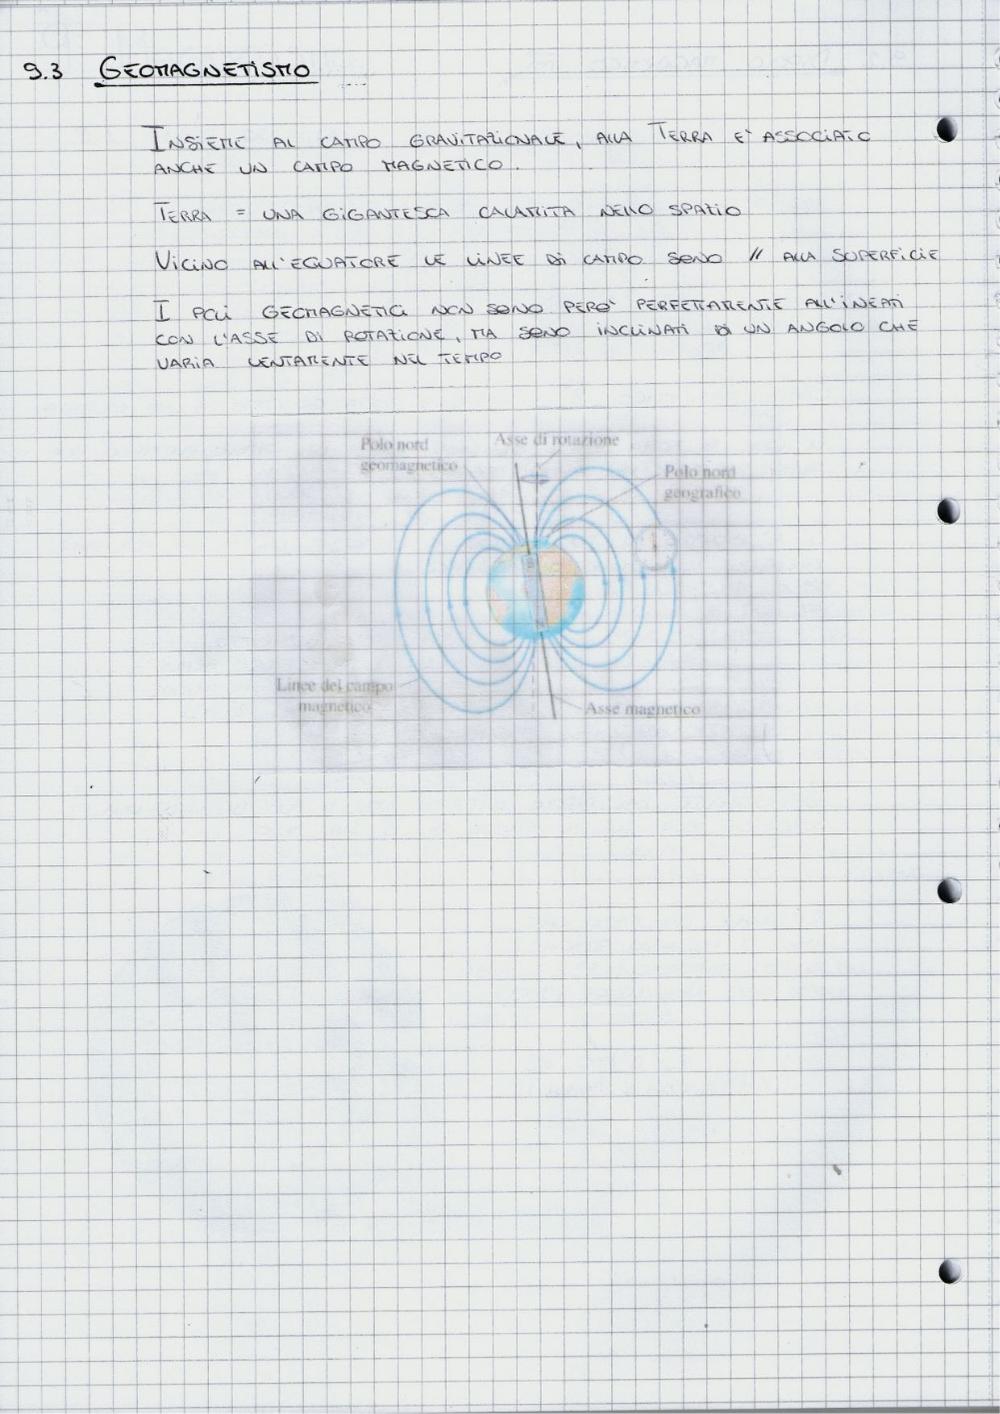 9.3 GEOMAGNETISMO
INSIEME AL CAMPO GRAVITAZIONALE, ALLA TERRA E' ASSOCIATO
ANCHE UN CAMPO MAGNETICO.
TERRA = UNA GIGANTESCA CALAMITA NELLO SPAZIO
VICINO ALL'EQUATORE LE LINEE DI CAMPO SONO // ALLA SUPERFICIE
I POLI GEOMAGNETICI NON SONO PERO' PERFETTAMENTE ALL'INEATI
CON L'ASSE DI ROTAZIONE, MA SONO INCLINATI DI UN ANGOLO CHE
VARIA LENTAMENTE NEL TEMPO
Polo nord
geomagnetico
Asse di rotazione
Polo nord
geografico
Linee del campo
magnetico
Asse magnetico